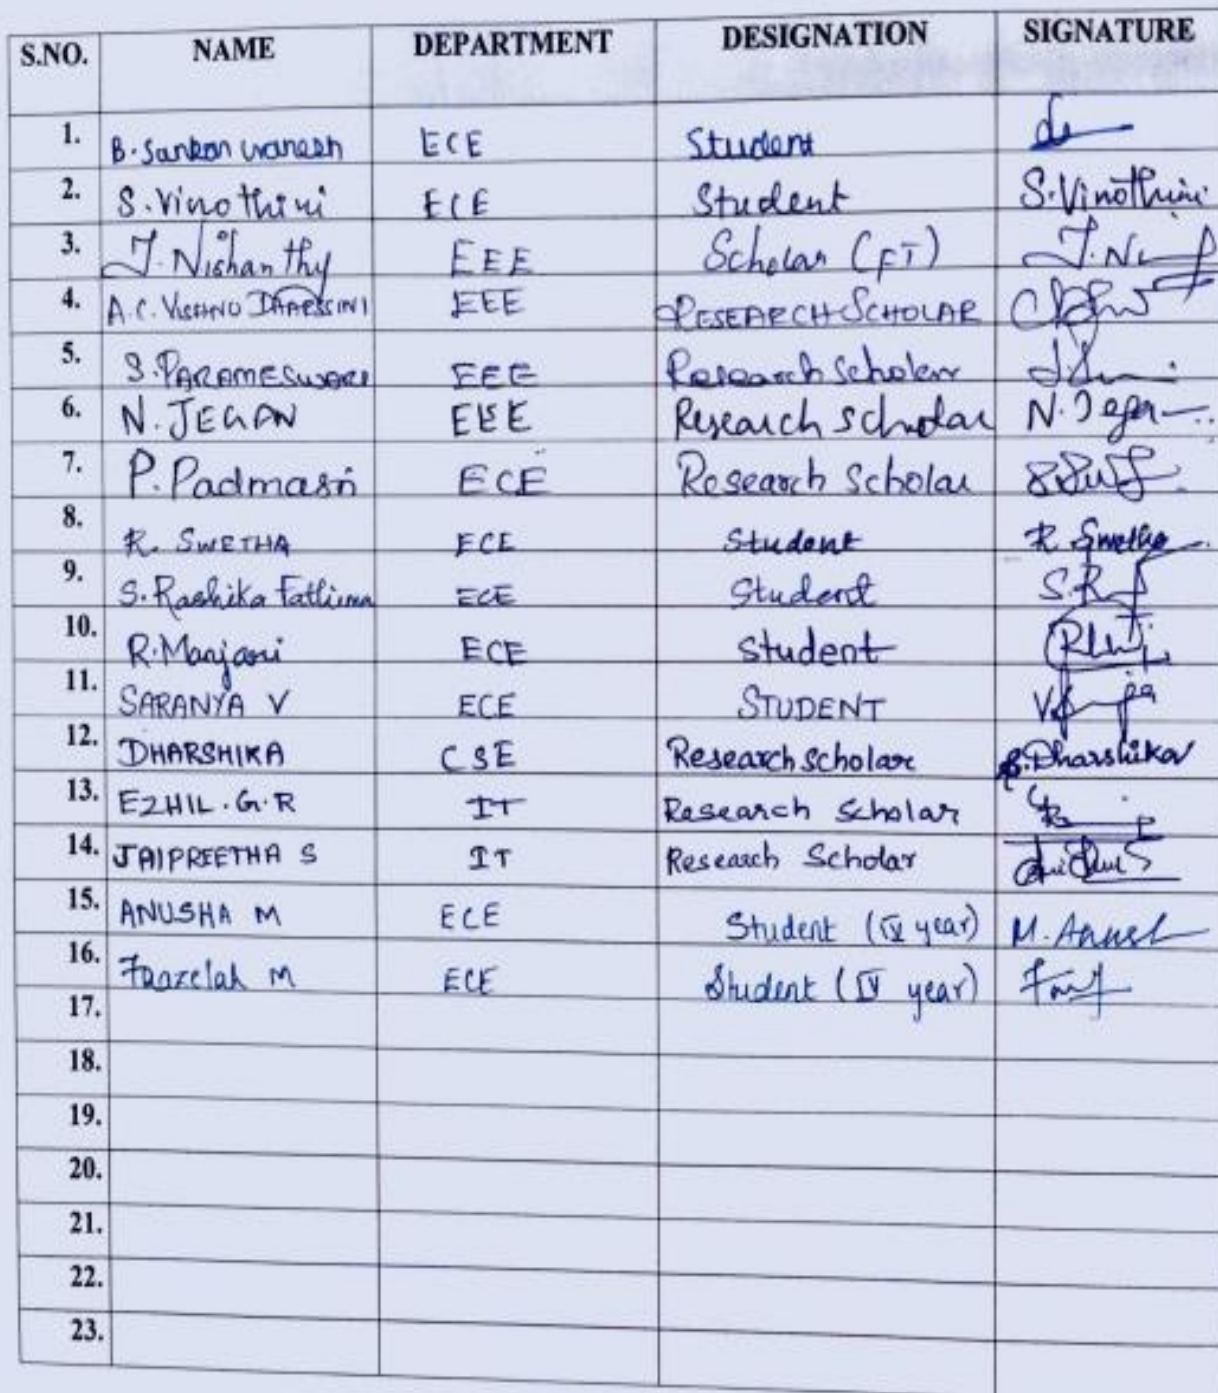 S.NO. NAME DEPARTMENT DESIGNATION SIGNATURE
1. B. ECE Student
2. S. Vinothini ECE Student S. Vinothini
3. J. Nishanthy EEE Scholar (FT) J. Ni
4. A.C. VISHNU DHARSSINI EEE RESEARCH SCHOLAR
5. S. PARAMESWARI EEE Research Scholar
6. N. JEGAN EEE Research Scholar N. Jegan
7. P. Padmasri ECE Research Scholar
8. R. SWETHA ECE Student R. Swetha
9. S. Rashika Fathima ECE Student
10. R. Manjani ECE Student
11. SARANYA V ECE STUDENT
12. DHARSHIKA CSE Research Scholar Dharshika
13. EZHIL.G.R IT Research Scholar
14. JAIPREETHA S IT Research Scholar
15. ANUSHA M ECE Student (IV year) M. Anush
16. Faazelah M ECE Student (IV year)
17.
18.
19.
20.
21.
22.
23.